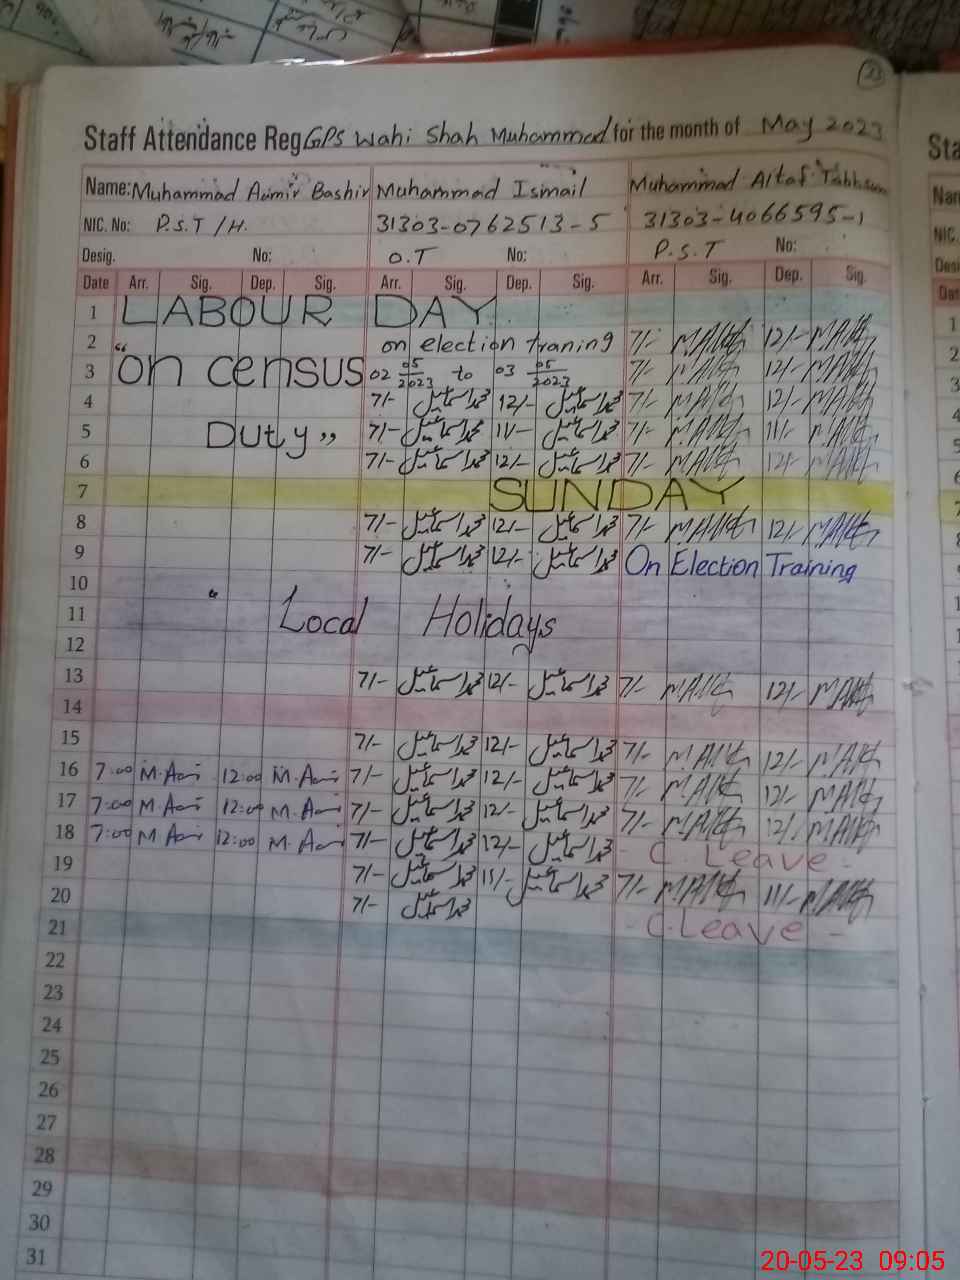 23
Staff Attendance Reg GPS Wahi Shah Muhammad for the month of May 2023
Name: Muhammad Aamir Bashir Muhammad Ismail Muhammad Altaf Tabbsum
NIC. No: P.S.T /H. 31303-0762513-5 31303-4066595-1
Desig. No: O.T No: P.S.T No:
Date Arr. Sig. Dep. Sig. Arr. Sig. Dep. Sig. Arr. Sig. Dep. Sig.
1 LABOUR DAY
2 on election traning 7/- 12/-
3 "on census 02 05/2023 to 03 05/2023 7/- 12/-
4 7/- محمد اسماعیل 12/- محمد اسماعیل 7/- 12/-
5 Duty" 7/- محمد اسماعیل 11/- محمد اسماعیل 7/- 11/-
6 7/- محمد اسماعیل 12/- محمد اسماعیل 7/- 12/-
7 SUNDAY
8 7/- محمد اسماعیل 12/- محمد اسماعیل 7/- 12/-
9 7/- محمد اسماعیل 12/- محمد اسماعیل On Election Training
10
11 " Local Holidays
12
13 7/- محمد اسماعیل 12/- محمد اسماعیل 7/- 12/-
14
15 7/- محمد اسماعیل 12/- محمد اسماعیل 7/- 12/-
16 7:00 M.Aami 12:00 M.Aami 7/- محمد اسماعیل 12/- محمد اسماعیل 7/- 12/-
17 7:00 M.Aami 12:00 M.Aami 7/- محمد اسماعیل 12/- محمد اسماعیل 7/- 12/-
18 7:00 M Aami 12:00 M.Aami 7/- محمد اسماعیل 12/- محمد اسماعیل - C. Leave -
19 7/- محمد اسماعیل 11/- محمد اسماعیل 7/- 11/-
20 7/- محمد اسماعیل - C.Leave -
21
22
23
24
25
26
27
28
29
30
31
20-05-23 09:05